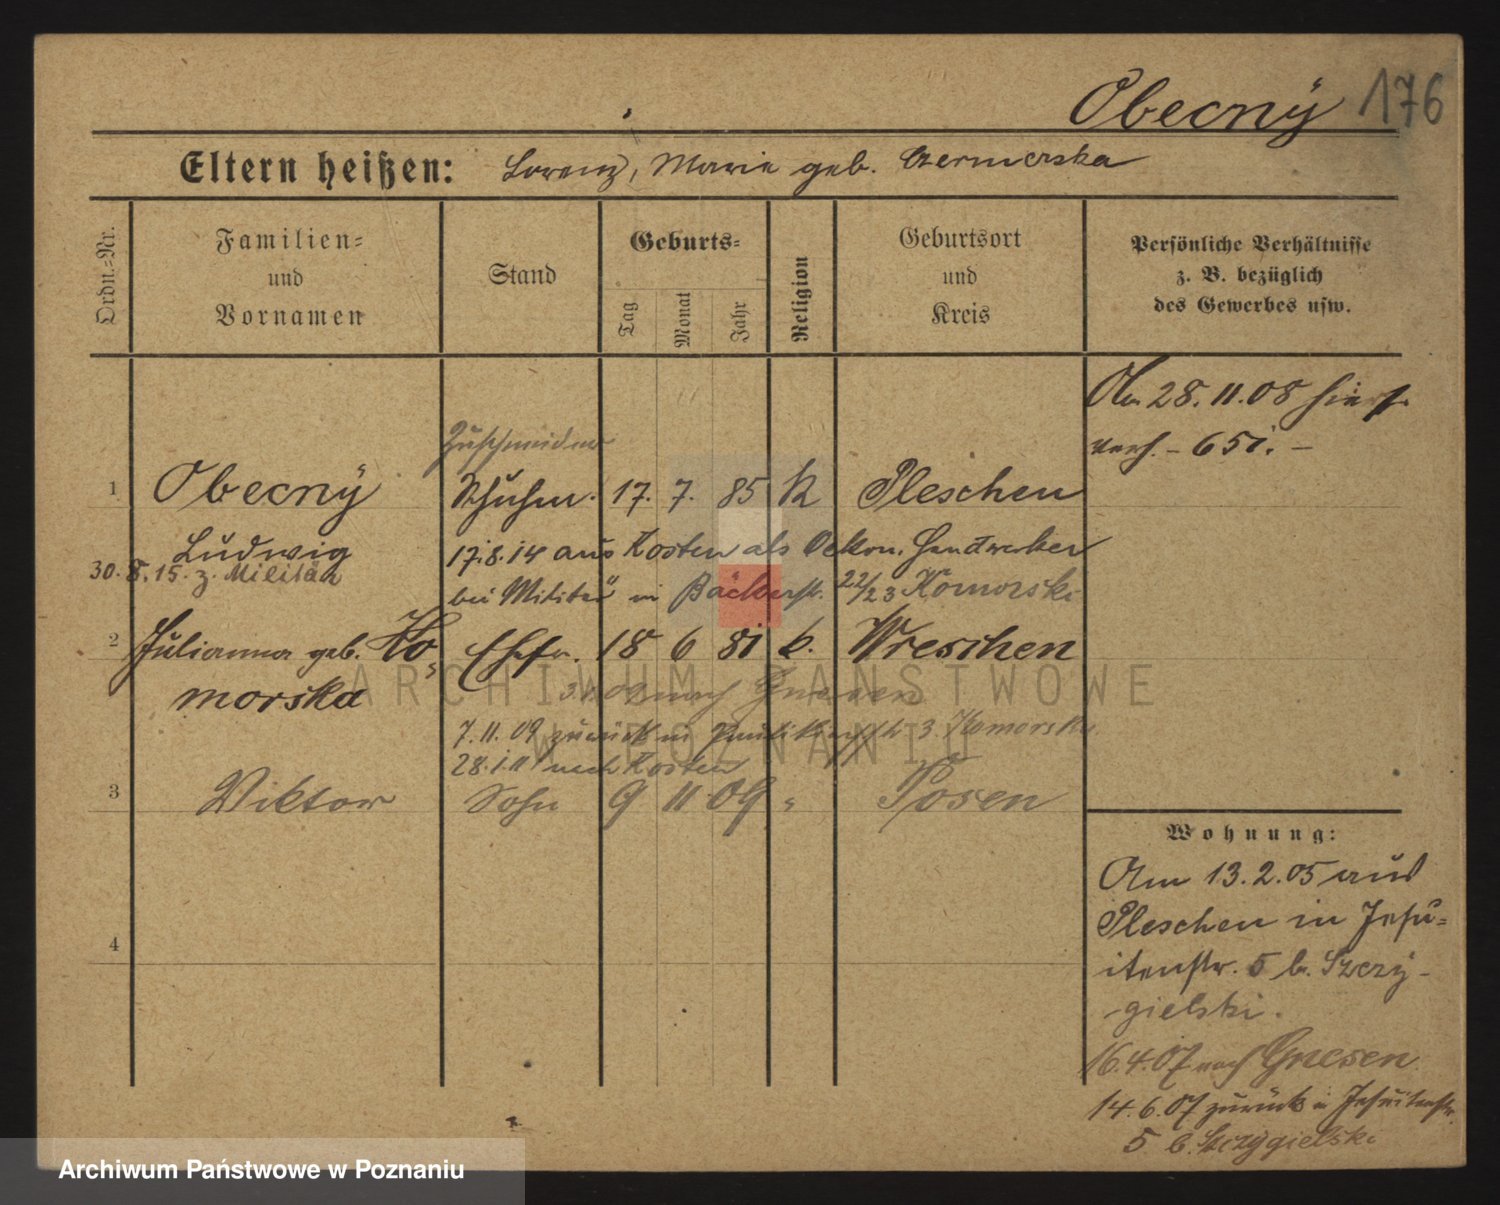 Obecnÿ 176
Eltern heißen: Lorenz, Marie geb. Czermerska
Ordn.=Nr.
Familien=
und
Vornamen
Stand
Geburts=
Tag
Monat
Jahr
Religion
Geburtsort
und
Kreis
Persönliche Verhältnisse
z. B. bezüglich
des Gewerbes usw.
Am 28.11.08 hier
verh. - 651. -
Zuschneider
1 Obecnÿ Schuhm. 17. 7. 85 k Pleschen
Ludwig 17.8.14 aus Kosten als Oekon. Handwerker
30.8.15. z. Militär
bei Militär in Bäckerstr. 22/23 Komorski
2 Julianna geb. Ko= Ehefr. 18 6 81 k. Wreschen
morska nach Gnesen
7.11.09 zurück in 3. Komorska
28.1.11 nach Kosten
3 Viktor Sohn 9 11 09 " Posen
4
Wohnung:
Am 13.2.05 aus
Pleschen in Jesu=
itenstr. 5 b. Szczy-
gielski.
16.4.07 nach Gnesen
14.6.07 zurück in Jesuitenstr.
5 b. Szczygielski
ARCHIWUM PAŃSTWOWE
W POZNANIU
Archiwum Państwowe w Poznaniu